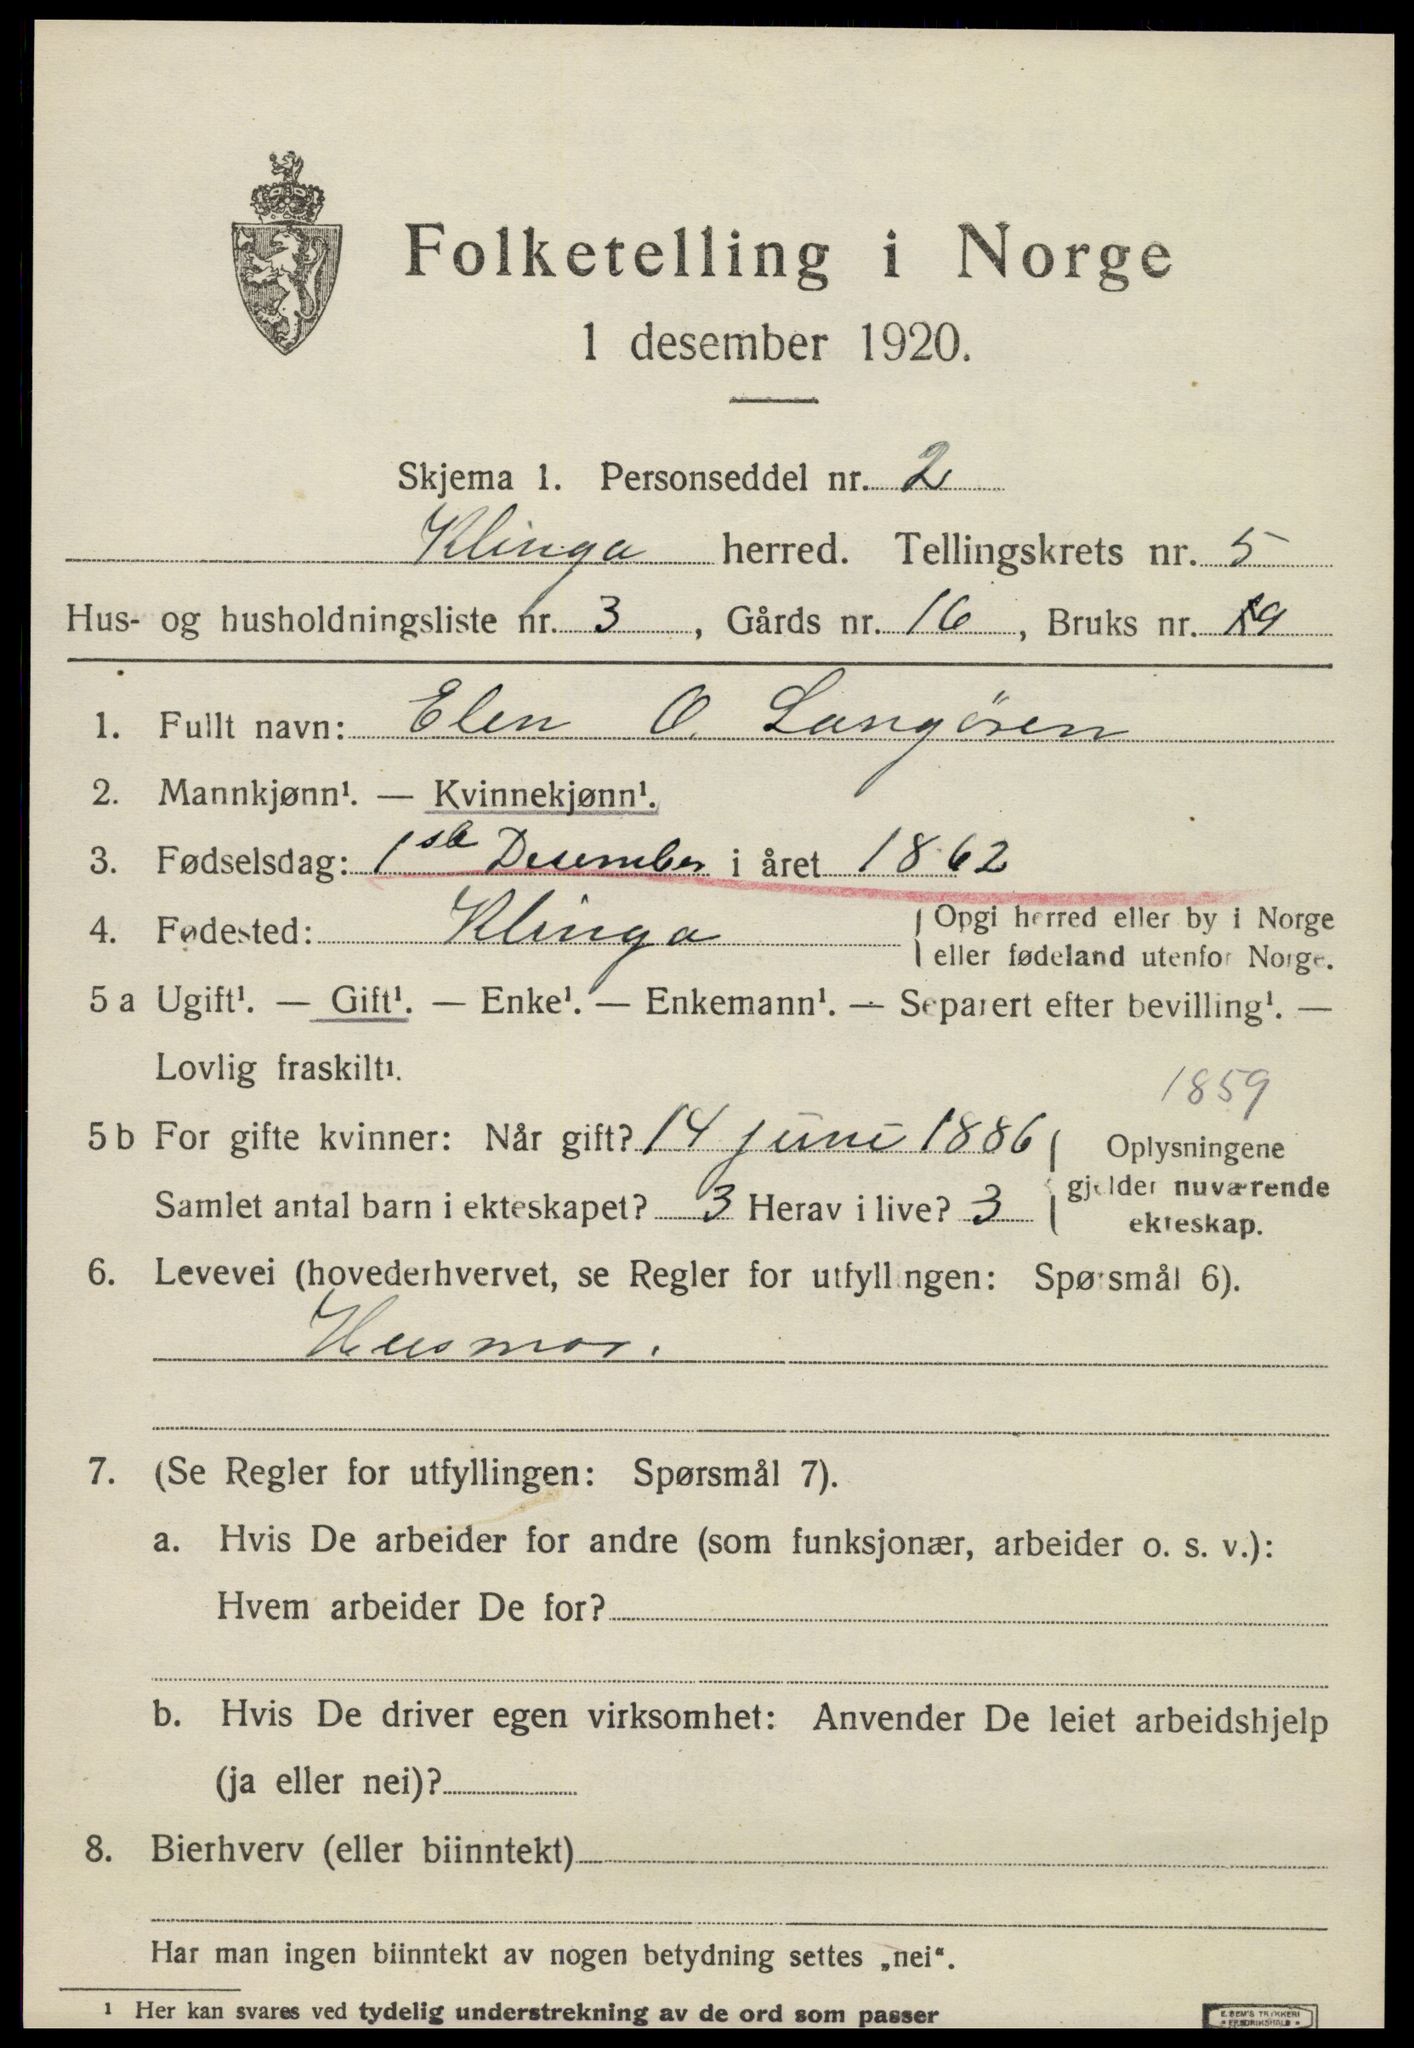 Folketelling i Norge
1 desember 1920.
Skjema 1. Personseddel nr. 2
Klinga herred. Tellingskrets nr. 5
Hus- og husholdningsliste nr. 3, Gårds nr. 16, Bruks nr. 19
1. Fullt navn: Elen O. Langören
2. Mannkjønn¹. — Kvinnekjønn¹.
3. Fødselsdag: 1ste Desember i året 1862
4. Fødested: Klinga { Opgi herred eller by i Norge
eller fødeland utenfor Norge.
5 a Ugift¹. — Gift¹. — Enke¹. — Enkemann¹. — Separert efter bevilling¹. —
Lovlig fraskilt¹.
1859
5 b For gifte kvinner: Når gift? 14 juni 1886 { Oplysningene
gjelder nuværende
Samlet antal barn i ekteskapet? 3 Herav i live? 3
ekteskap.
6. Levevei (hovederhvervet, se Regler for utfyllingen: Spørsmål 6).
Husmor.
7. (Se Regler for utfyllingen: Spørsmål 7).
a. Hvis De arbeider for andre (som funksjonær, arbeider o. s. v.):
Hvem arbeider De for?
b. Hvis De driver egen virksomhet: Anvender De leiet arbeidshjelp
(ja eller nei)?
8. Bierhverv (eller biinntekt)
Har man ingen biinntekt av nogen betydning settes „nei“.
¹ Her kan svares ved tydelig understrekning av de ord som passer
E. SEM'S TRYKKERI
• FREDRIKSHALD •